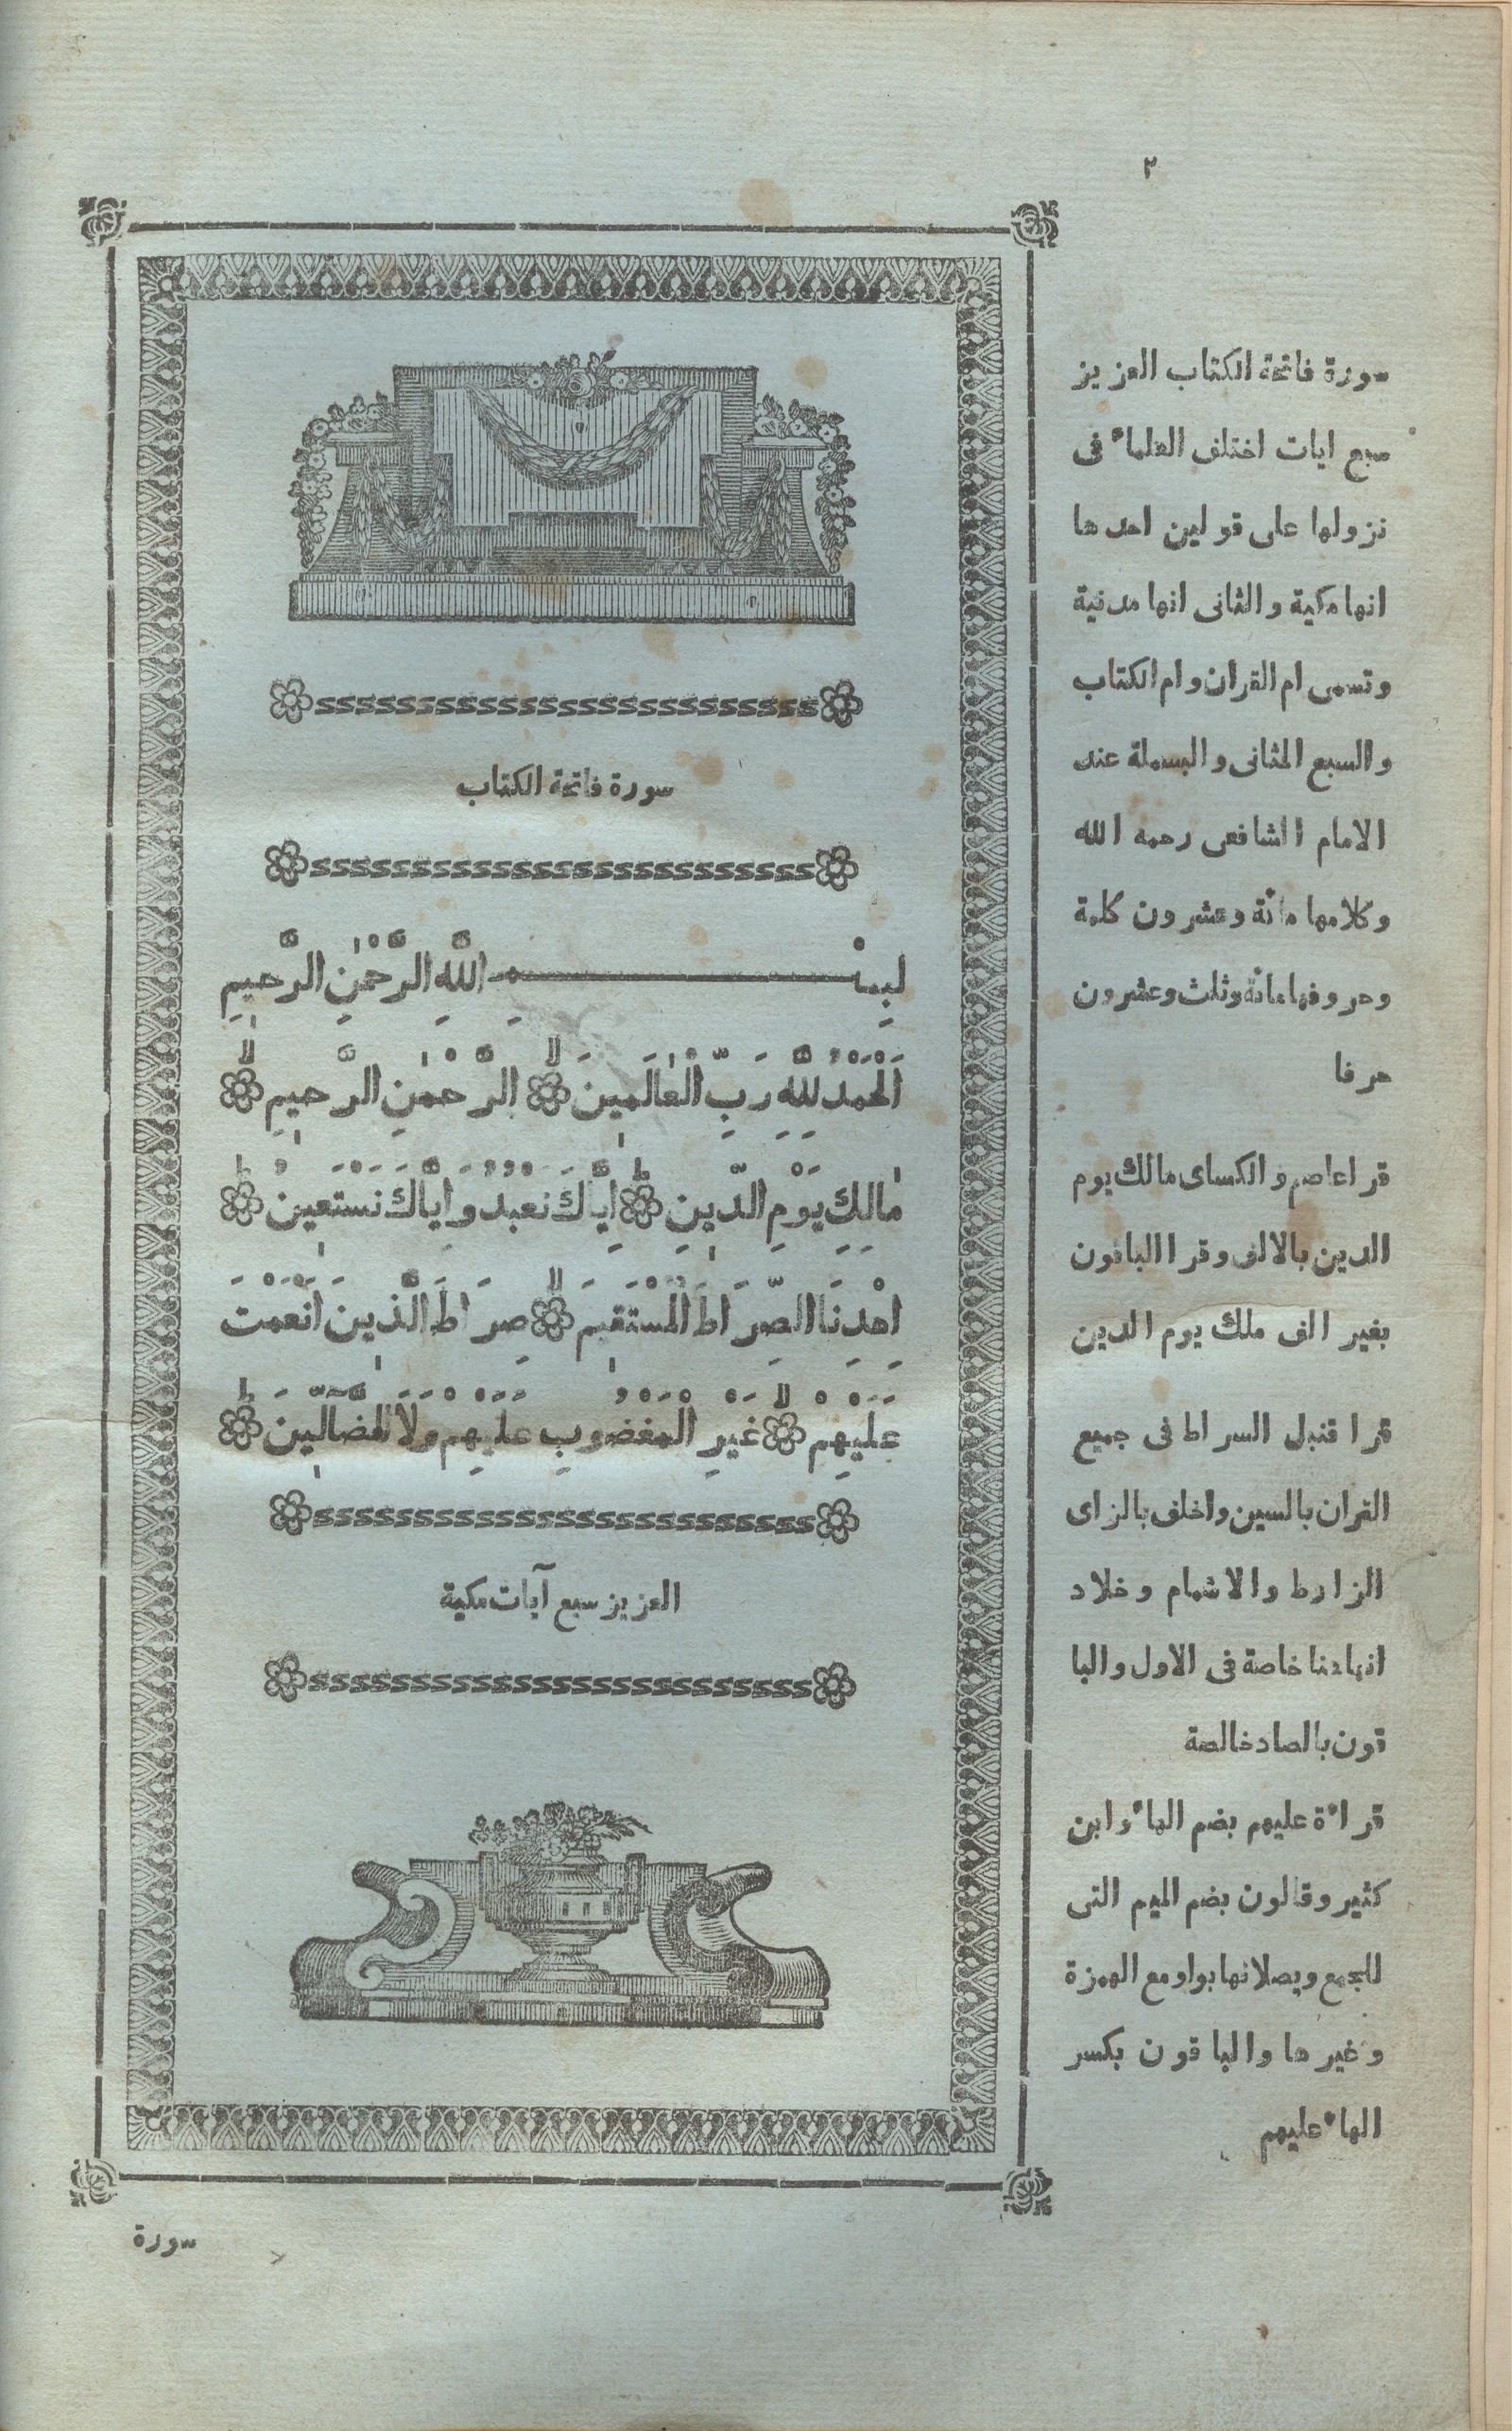 ٢
سورة فاتحة الكتاب العزيز
سبع ايات اختلف العلماء فى
نزولها على قولين احدها
انها مكية والثانى انها مدنية
وتسمى ام القران وام الكتاب
والسبع المثانى والبسملة عند
الامام الشافعى رحمه الله
وكلامها مائة وعشرون كلمة
وحروفها مائة وثلث وعشرون
حرفا
قرا عاصم والكساى مالك يوم
الدين بالالف وقرا الباقون
بغير الف ملك يوم الدين
قرا قنبل السراط فى جميع
القران بالسين واخلف بالزاى
الزارط والاشمام وخلاد
انهادنا خاصة فى الاول والبا
قون بالصاد خالصة
قراءة عليهم بضم الهاء وابن
كثير وقالون بضم الميم التى
للجمع ويصلانها بواو مع الهمزة
وغيرها والباقون بكسر
الهاء عليهم
سورة فاتحة الكتاب
بِسْمِ اللَّهِ الرَّحْمٰنِ الرَّحِيمِ
اَلْحَمْدُ لِلَّهِ رَبِّ الْعَالَمِينَ ۙ الرَّحْمٰنِ الرَّحِيمِ ۙ
مَالِكِ يَوْمِ الدِّينِ ۗ اِيَّاكَ نَعْبُدُ وَاِيَّاكَ نَسْتَعِينُ ۗ
اِهْدِنَا الصِّرَاطَ الْمُسْتَقِيمَ ۙ صِرَاطَ الَّذِينَ اَنْعَمْتَ
عَلَيْهِمْ ۙ غَيْرِ الْمَغْضُوبِ عَلَيْهِمْ وَلَا الضَّالِّينَ ۗ
العزيز سبع آيات مكية
سورة